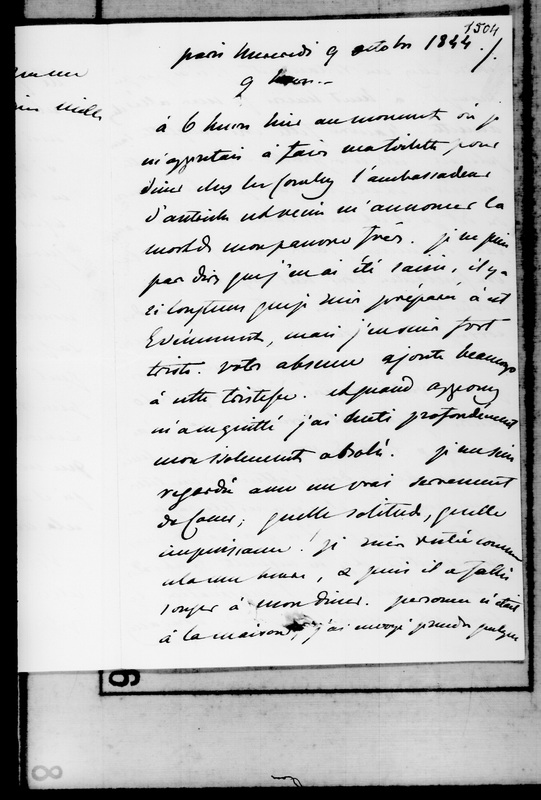 1504
paris mercredi 9 octobre 1844./.
9 heures.
à 6 heures hier au moment où je
m'appretais à faire ma toilette pour
diner chez les Cowley l'ambassadeur
d'autriche est venu m'annoncer la
mort de mon pauvre frère. je ne puis
pas dire que j'en ai été saisie, il y a
si longtems que je suis préparée à cet
Evènement, mais j'en suis fort
triste. votre absence ajoute beaucoup
à cette tristesse. et quand appony
m'a quittée j'ai senti profondément
mon isolement absolu. je me suis
regardée avec un vrai serrement
de Coeur; quelle solitude, quelle
impuissance! je suis restée comme
cela une heure, & puis il a fallu
songer à mon diner. personne n'était
à la maison, j'ai envoyé prendre quelque